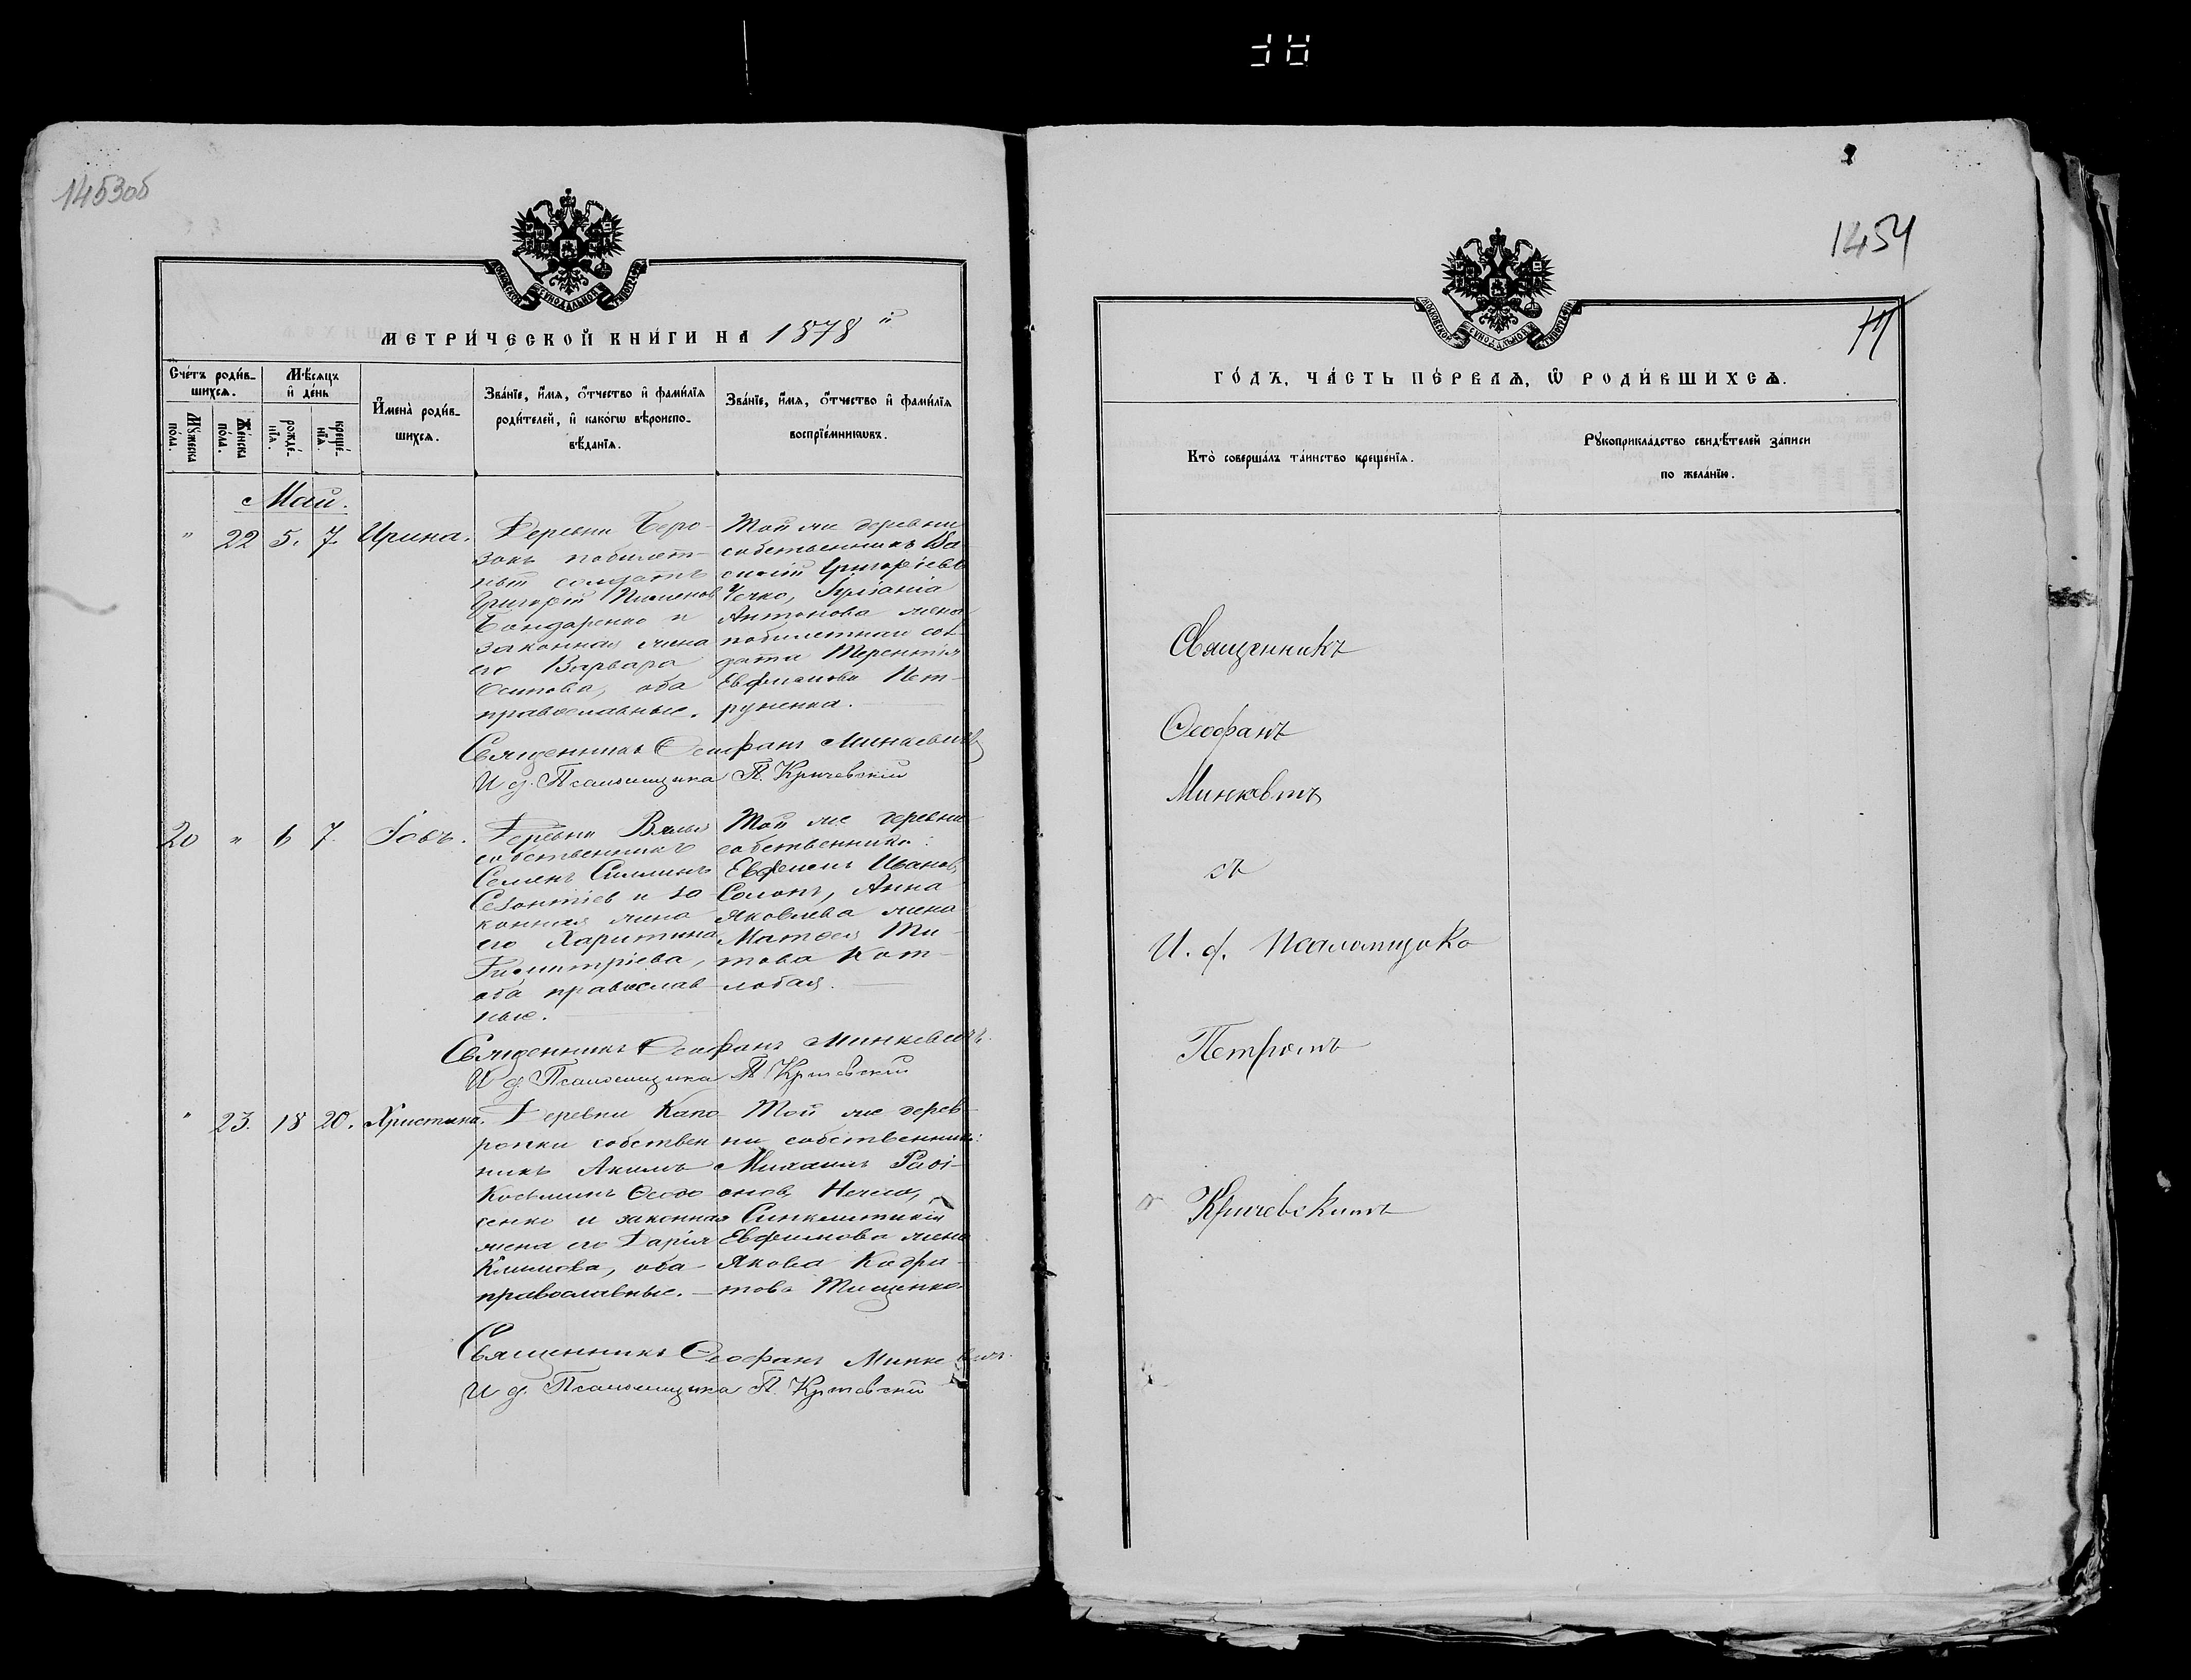 145305
МЕТРИ́ЧЕСКОЙ КНИ́ГИ НА 1878 й
Сче́тъ роди́в-
шихсѧ.
Мꙋ́жеска по́ла.
Же́нска по́ла.
Мѣ́сѧцъ
и҆ де́нь
рожде́-нїѧ.
креще́-нїѧ.
И҆мена̀ роди́в-
шихсѧ.
Зва́нїе, и҆́мѧ, ѻ҆́тчество и҆ фами́лїѧ
роди́телей, и҆ како́гѡ вѣроиспо-
вѣ́данїѧ.
Зва́нїе, и҆́мѧ, ѻ҆́тчество и҆ фами́лїѧ
воспрїе́мникѡвъ.
Май.
" 22 5. 7. Ирина.
Деревни Беро-
зокъ побилет-
ный солдатъ
Григорій Пименов
Бондаренко и
законная жена
его Варвара
Осипова, оба
православные.
Той же деревни
собственникъ Ва-
силій Григоріевъ
Чечко, Іуліанія
Антонова жена
побилетнаи сол-
дата Терентія
Евфимова Пет-
руненка.
Священникъ Ѳеофанъ Минкевичъ
И д. Псаломщика П. Кричевскій
20 " 6 7. Іовъ.
Деревни
собственникъ
Семенъ
и за-
конная жена
его Харитина
Димитріева,
оба православ-
ные.
Той же деревни
собственники:
Евфимъ Иванов
Солонъ, Анна
Яковлева жена
Матѳея Ти-
това Кот-
лобая.
Священникъ Ѳеофанъ Минкевичъ.
И д. Псаломщика П. Кричевскій
" 23. 18 20. Христина.
Деревни Капо-
ропки собствен-
никъ Акимъ
Козьминъ Ѳедо-
сенко и законная
жена его Дарія
Климова, оба
православные.
Той же дерев-
ни собственник:
Михаилъ Раѳі-
онов
Синклитикія
Евфимова жена
Якова Кодра-
това Тищенко.
Священникъ Ѳеофанъ Минкевичъ.
И д. Псаломщика П. Кричевскій
1454
ГО́ДЪ, ЧА́СТЬ ПЕ́РВАѦ, Ѽ РОДИ́ВШИХСѦ.
Кто̀ соверша́лъ та́инство креще́нїѧ.
Рꙋкоприкла́дство свидѣ́телей за́писи
по жела́нїю.
Священникъ
Ѳеофанъ
Минкевичъ
съ
И. д. Псаломщика
Петромъ
Кричевскимъ